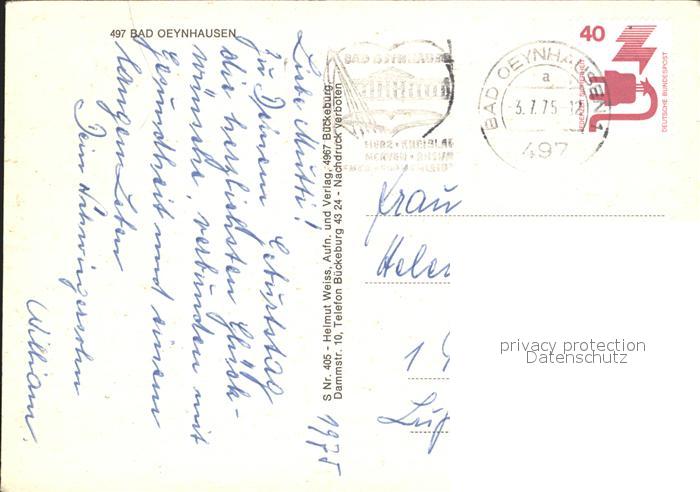 497 BAD OEYNHAUSEN
Liebe Mutti!
Zu Deinem Geburtstag
die herzlichsten Glück-
wünsche, verbunden mit
Gesundheit und einem
langen Leben
Dein Schwiegersohn
William.
1975
S Nr. 405 - Helmut Weiss, Aufn. und Verlag, 4967 Bückeburg
Dammstr. 10, Telefon Bückeburg 43 24 - Nachdruck verboten
BAD OEYNHAUSEN 1
a
-3.7.75-12
497
HERZ · KREISLA
NERVEN · RHEUM
40
JEDERZEIT SICHERHEIT
DEUTSCHE BUNDESPOST
Frau
Hele
1
privacy protection
Datenschutz